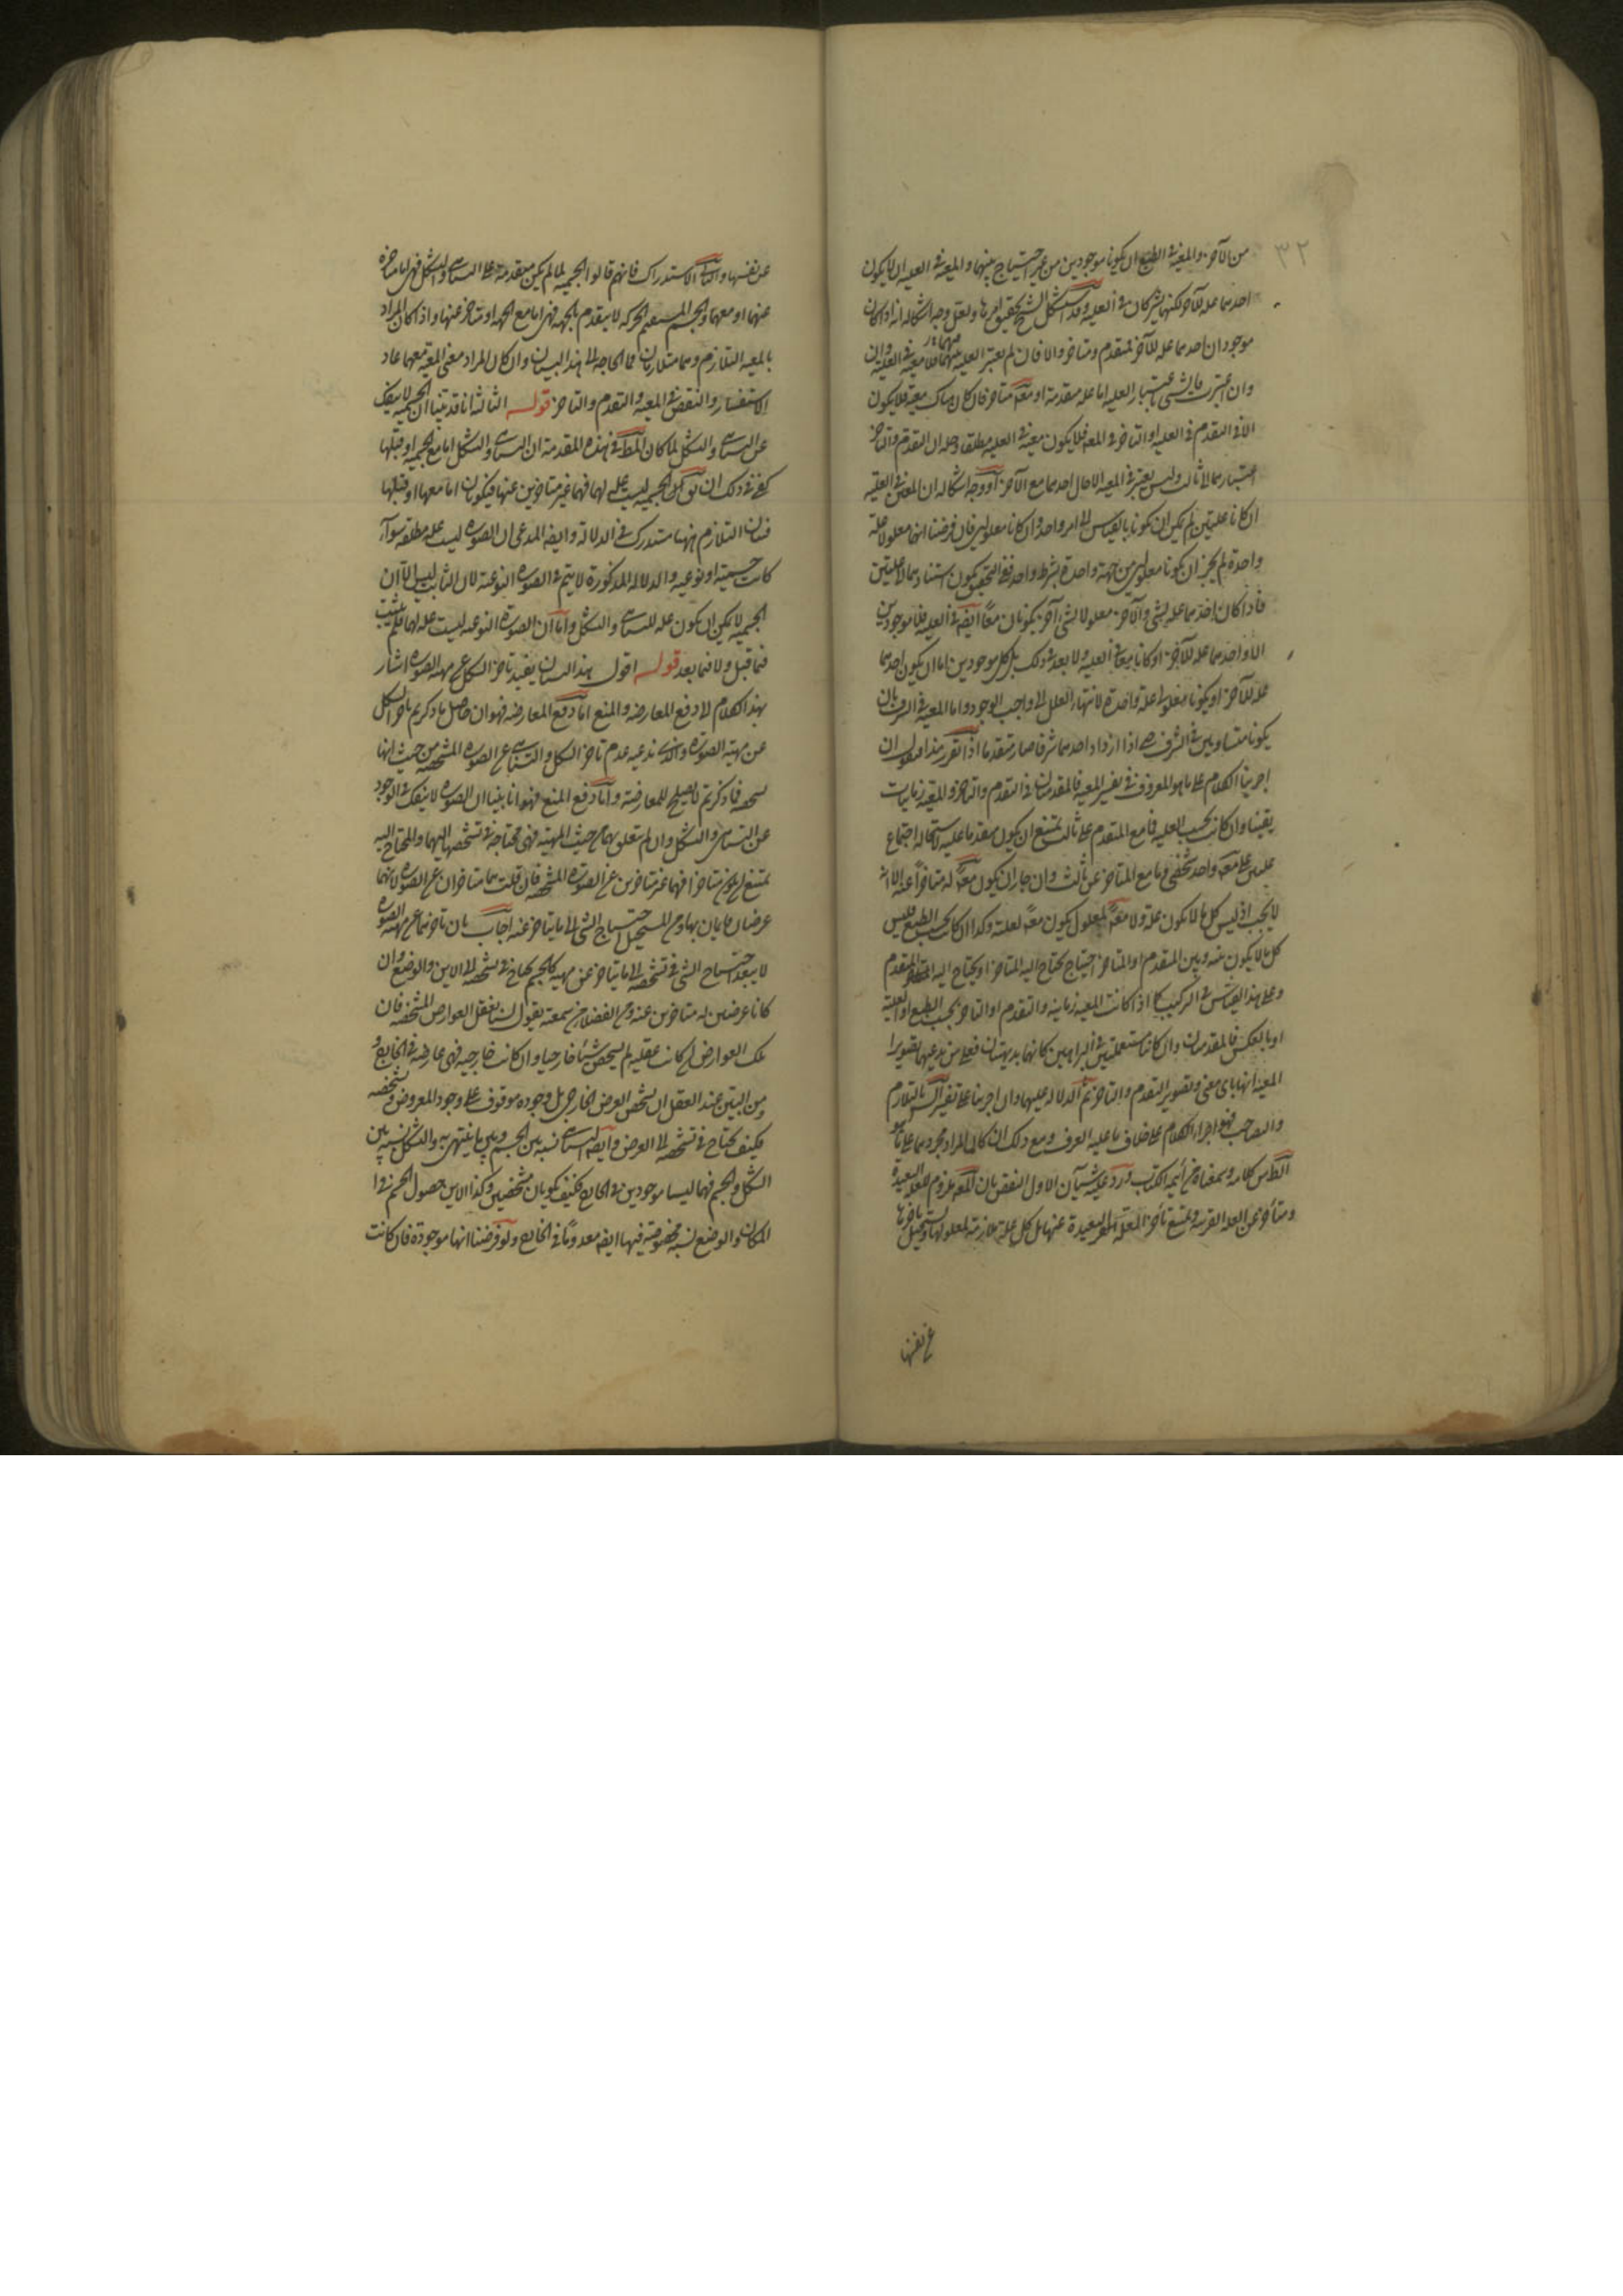 ٣٢
من الآخر والمعية فى الطبع ان يكونا موجودين من غير احتياج بينهما والمعية فى العلية ان لا يكون
احدهما علة للآخر لكنهما يشتركان فى العلية وقد استشكل الشيخ تحقيق امرها ولعل وجه اشكاله انه اذا كان
موجودان احدهما علة للآخر فمتقدم ومتاخر والا فان لم يعتبر العلية فيهما فلا معية فى العلية
وان اعتبرت فالشى باعتبار العلية اما علة متقدمة او متاخر فان كان هناك معية فلا يكون
الا فى التقدم فى العلية او التاخر فى المعية فلا يكون معية فى العلية مطلقا وحله ان التقدم والتاخر
اعتبارهما لا ثالث وليس يعتبر فى المعية الا حال احدهما مع الآخر او وجه اشكاله ان المعين فى العلية
ان كانا علتين لم يمكن ان يكونا بالقياس الى امر واحد وان كانا معلولين فان فرضنا انهما معلولا علة
واحدة لم يجز ان يكونا معلولين من جهة واحدة بشرط واحد ففى التحقيق يكون استنادهما الى علتين
فاذا كان احدهما علة لشى والآخر معلولا لشى آخر يكونان معا ايضا فى العلية فلا موجودين
الا واحدهما علة للآخر او كانا معا فى العلية ولا بعد فى ذلك بل كل موجودين اما ان يكون احدهما
علة للآخر او يكونا معلولى علة واحدة لانتهاء العلل الى واجب الوجود واما المعية فى الشرف فان
يكونا متساويين فى الشرف حتى اذا ازداد احدهما شرفا صار متقدما اذا تقرر هذا فنقول ان
اجرينا الكلام على ما هو المعروف فى تفسير المعية فالمقدمتان فى التقدم والتاخر والمعية زمانيات
يقينا وان كانت بحسب العلية فما مع المتقدم على ثالث يمتنع ان يكون متقدما عليه لاستحالة اجتماع
علتين على معلول واحد شخصى وما مع المتاخر عن ثالث وان جاز ان يكون معلولا له متاخرا عنه الا انه
لا يجب اذ ليس كل ما لا يكون علة ولا معلولا لمعلول يكون معلولا لعلته وكذا ان كانت بحسب الطبع فليس
كل ما لا يكون بينه وبين المتقدم او المتاخر احتياج يحتاج اليه المتاخر او يحتاج اليه المتقدم
وعلى هذا القياس فى التركيب كما اذا كانت المعية زمانية والتقدم او التاخر بحسب الطبع او العلية
او بالعكس فالمقدمتان وان كانتا مستعملتين فى البراهين كانهما بديهتان فعلى من يدعيهما تصوير
المعية انها باى معنى وتصوير التقدم والتاخر ثم الدلالة عليهما وان اجرينا على تفسير الشارح بالتلازم
والتصاحب فهو اجراء الكلام على خلاف ما عليه العرف ومع ذلك ان كان المراد مجردهما على ما هو
الظاهر من كلامه وسمعناه من ائمة الكتاب ورد عليه شيئان الاول النقض بان المعلول ملزوم للعلة البعيدة
ومتأخر عن العلة القريبة ويمتنع تأخر العلة البعيدة عنها بل كل علة ملازمة لمعلولها ويستحيل تاخرها
عن نفسها
عن نفسها والثانى الاستدراك فانهم قالوا الجسمية لما لم يكن متقدمة على التناهى والشكل فهى اما متاخرة
عنهما او معهما والجسم المستقيم الحركة لا يتقدم بالجهة فهى اما مع الجهة او متاخر عنها واذا كان المراد
بالمعية التلازم وهما متلازمان فما الحاجة الى هذا البيان وان كان المراد معنى المعية معهما عاد
الاستفسار والنقض فى المعية والتقدم والتاخر قوله الثالث انا قد بينا ان الجسمية لا ينفك
عن التناهى والشكل لما كان المط فى هذه المقدمة ان التناهى والشكل اما مع الجسمية او قبلها
كفى فى ذلك ان يق الجسمية ليست علة لهما فهما غير متاخرين عنها فيكونان اما معها او قبلها
فبيان التلازم ههنا مستدرك فى الدلالة وايضا المدعى ان الصورة ليست علة مطلقة سواء
كانت جسمية او نوعية والدلالة المذكورة لا يتم فى الصورة النوعية لان الثابت ليس الا ان
الجسمية لا يمكن ان يكون علة للتناهى والشكل واما ان الصورة النوعية ليست علة لهما فلم يثبت
فيما قبل ولا فيما بعد قوله اقول هذا البيان يفيد تاخر الشكل عن مهية الصورة اشار
بهذا الكلام لا دفع المعارضة والمنع اما دفع المعارضة فهو ان حاصل ما ذكرتم تاخر الشكل
عن مهية الصورة والذى ندعيه عدم تاخر الشكل والتناهى عن الصورة المشخصة من حيث انها
مشخصة فما ذكرتم لا يصلح للمعارضة واما دفع المنع فهو انا بينا ان الصورة لا ينفك فى الوجود
عن التناهى والشكل وان لم يتعلق بهما من حيث المهية فهى محتاجة فى تشخصها اليهما والمحتاج اليه
يمتنع ان يكون متاخرا فهما غير متاخرين عن الصورة المشخصة فان قلت هما متاخران عن الصورة لانهما
عرضان قايمان بها ومن المستحيل احتياج الشى الى ما يتاخر عنه اجاب بان تاخرهما عن مهية الصورة
لا يبعد احتياج الشى فى تشخصه الى ما يتاخر عن مهيته كالجسم يحتاج فى تشخصه الى الاين والوضع وان
كانا عرضيين له متاخرين عنه ومن الفضلاء من سمعته يقول لسنا نعقل العوارض المشخصة فان
تلك العوارض ان كانت عقلية لم يشخص شيئا خارجيا وان كانت خارجية فهى عارضة فى الخارج و
ومن البين عند العقل ان تشخص العرض الخارجى بل وجوده موقوف على وجود المعروض وتشخصه
فكيف يحتاج فى تشخصه الى العرض وايضا التناهى نسبة بين الجسم وبين ما ينتهى به والشكل نسبة بين
الشكل والجسم فهما ليسا موجودين فى الخارج فكيف يكونان مشخصين وكذا الاين حصول الجسم فى
المكان والوضع نسبة مخصوصة فيهما ايضا معدومان فى الخارج ولو فرضنا انها موجودة فان كانت